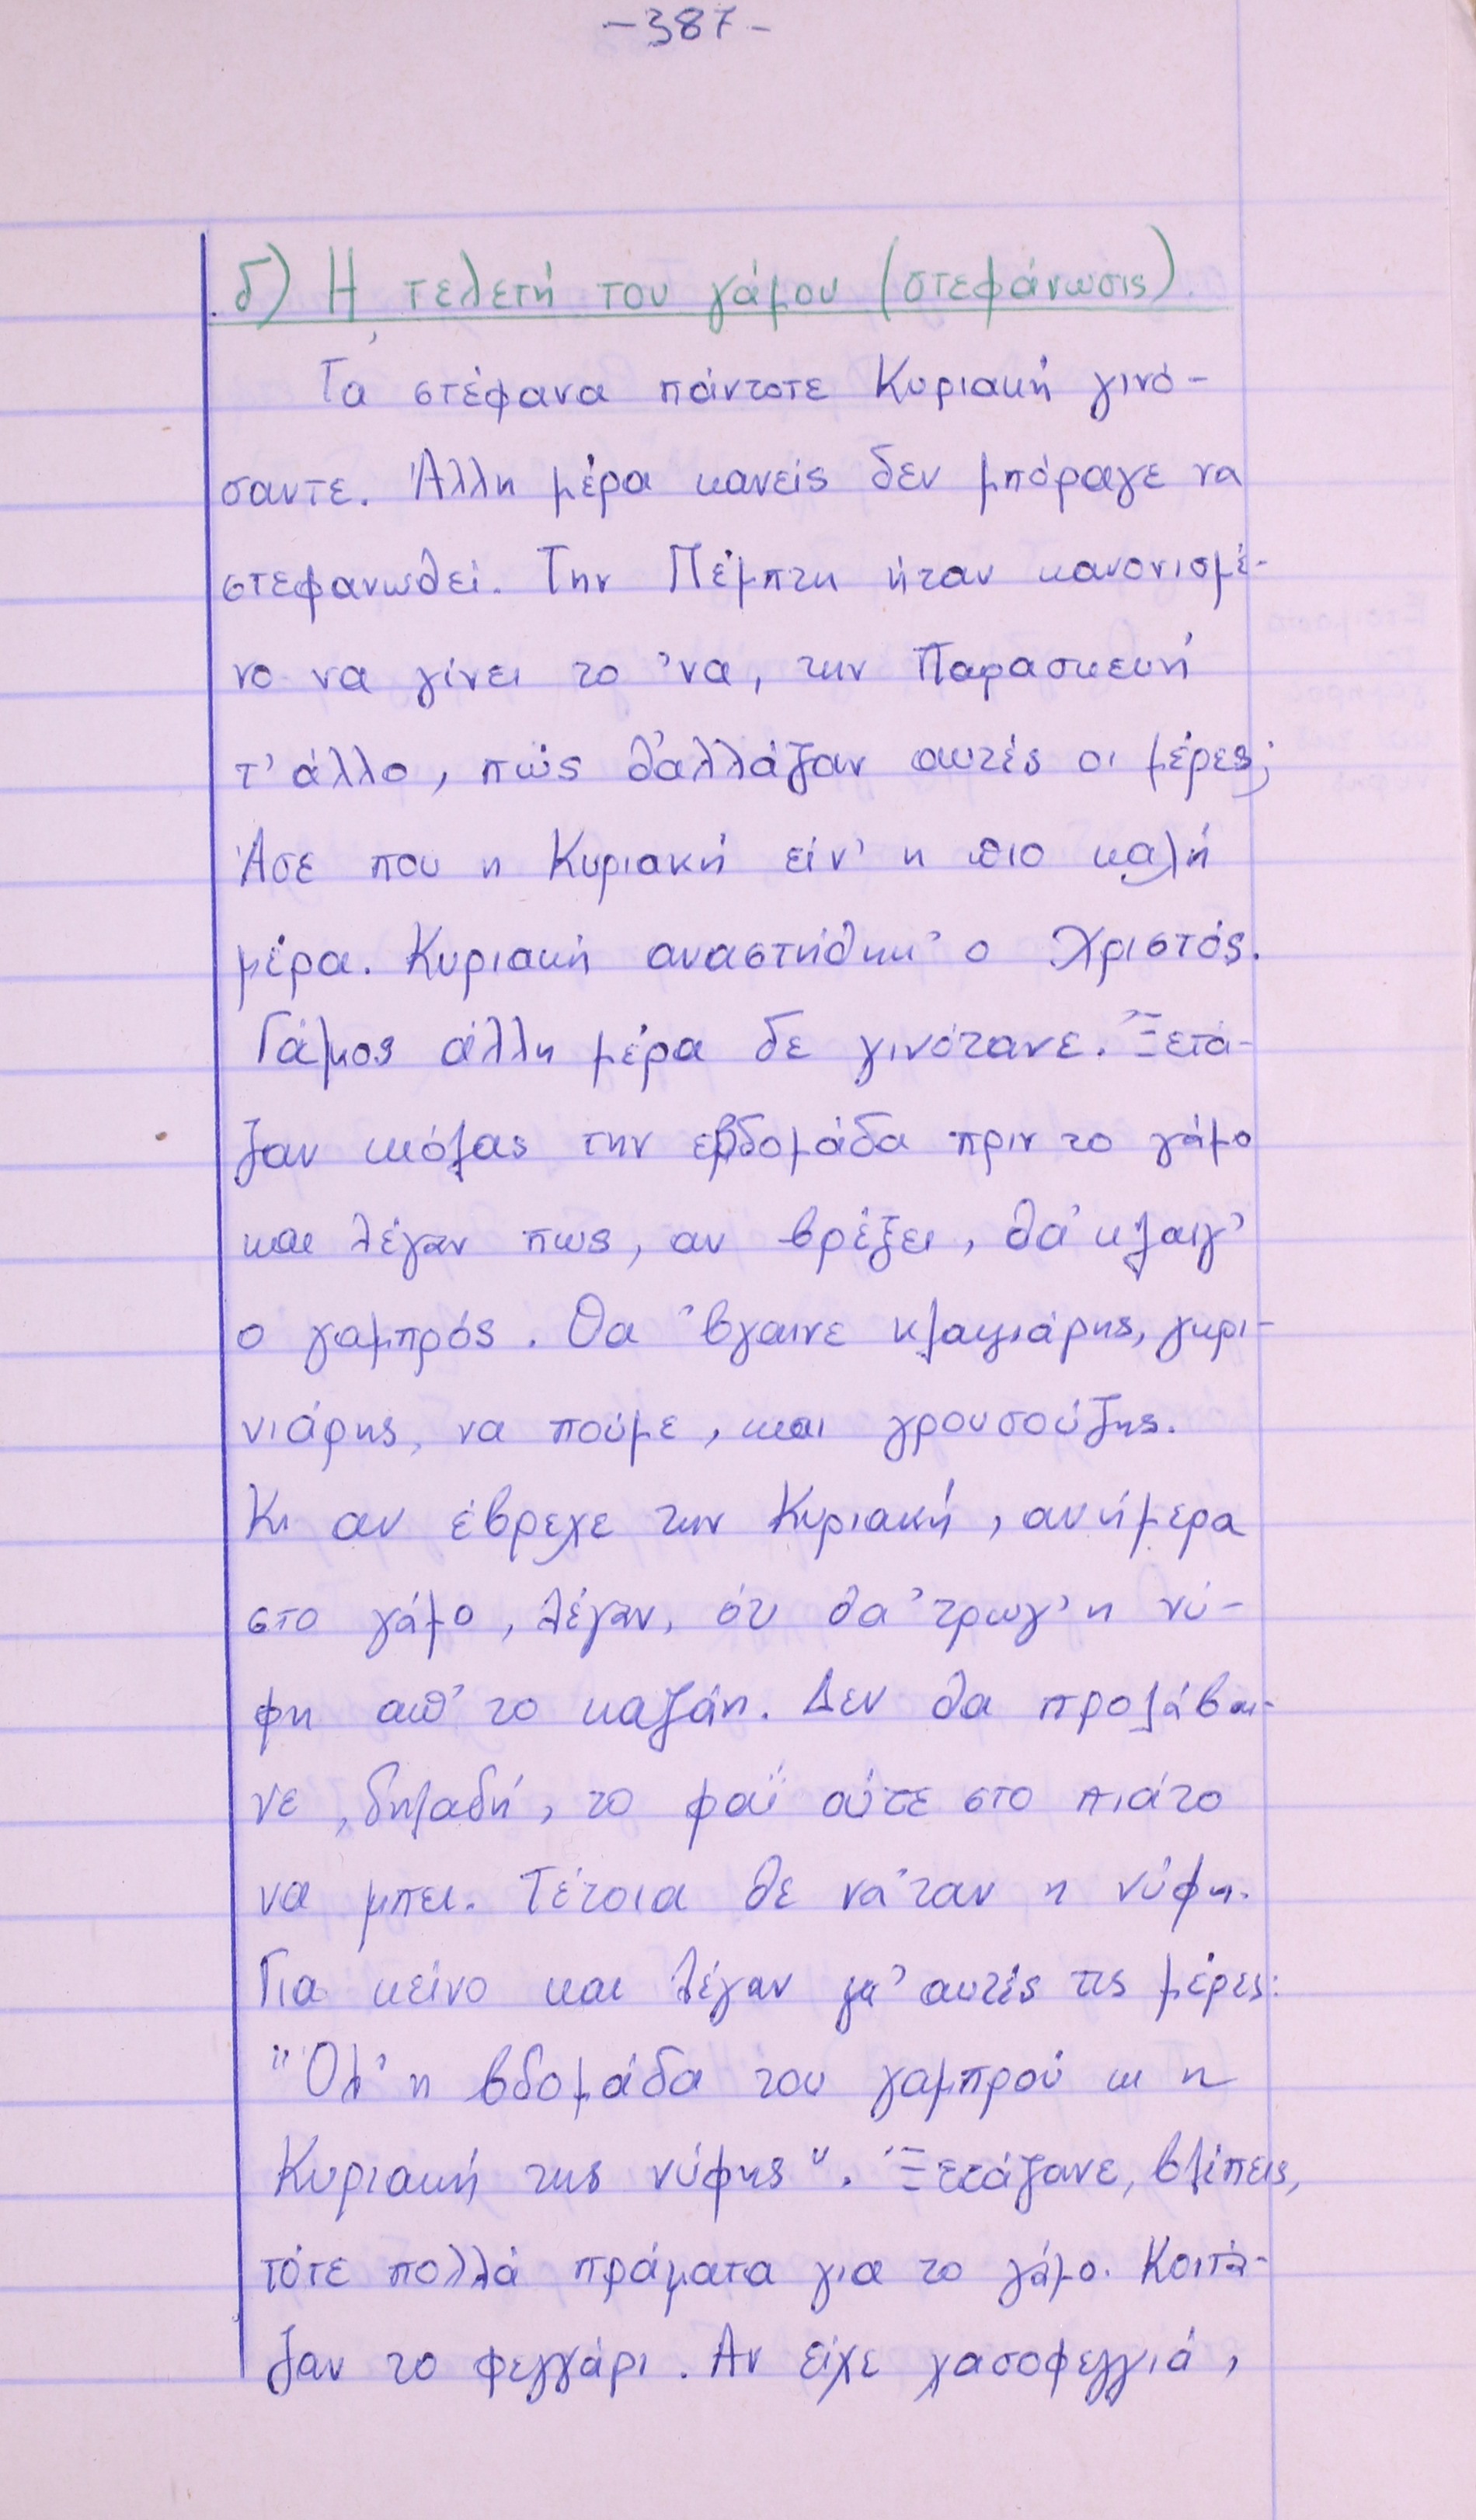 -387-
δ) Η τελετή του γάμου (στεφάνωσις).
Τα στέφανα πάντοτε Κυριακή γινό-
σαντε. Άλλη μέρα κανείς δεν μπόραγε να
στεφανωθεί. Την Πέμπτη ήταν κανονισμέ-
νο να γίνει το 'να, την Παρασκευή
τ' άλλο, πώς θ' αλλάζαν αυτές οι μέρες;
Άσε που η Κυριακή είν' η πιο καλή
μέρα. Κυριακή αναστήθηκ' ο Χριστός.
Γάμος άλλη μέρα δε γινότανε. Ξετά-
ζαν κιόλας την εβδομάδα πριν το γάμο
και λέγαν πως, αν βρέξει, θα 'κλαιγ'
ο γαμπρός. Θα 'βγαινε κλαψιάρης, γκρι-
νιάρης, να πούμε, και γρουσούζης.
Κι αν έβρεχε την Κυριακή, ανήμερα
στο γάμο, λέγαν, ότι θα 'τρωγ' η νύ-
φη απ' το καζάν. Δεν θα προλάβαι-
νε, δηλαδή, το φαΐ ούτε στο πιάτο
να μπει. Τέτοια θε να 'ταν η νύφη.
Για κείνο και λέγαν γι' αυτές τις μέρες:
"Όλ' η βδομάδα του γαμπρού κι η
Κυριακή της νύφης". Ξετάζανε, βλέπεις,
τότε πολλά πράματα για το γάμο. Κοιτά-
ζαν το φεγγάρι. Αν είχε χασοφεγγιά,